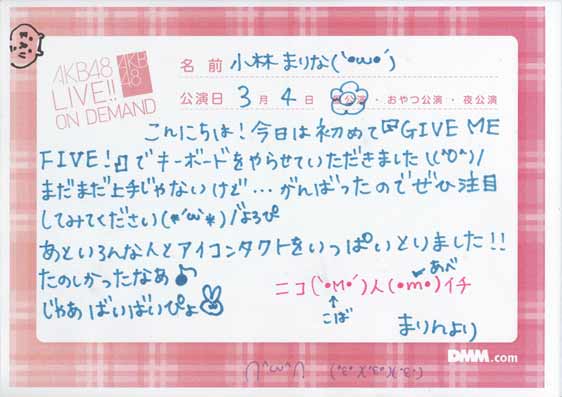 AKB48
LIVE!!
ON DEMAND
AKB
48
名前 小林まりな(`•ω•´)
公演日 3月4日 昼公演・おやつ公演・夜公演
こんにちは!今日は初めて『GIVE ME
FIVE!』でキーボードをやらせていただきました\(^O^)/
まだまだ上手じゃないけど…がんばったのでぜひ注目
してみてください(*´ω`*)/よろぴ
あといろんな人とアイコンタクトをいっぱいとりました!!
たのしかったなあ♪
あべ
ニコ(`•м•´)人(•m•)イチ
こば
じゃあばいばいぴょ
まりんより
DMM.com